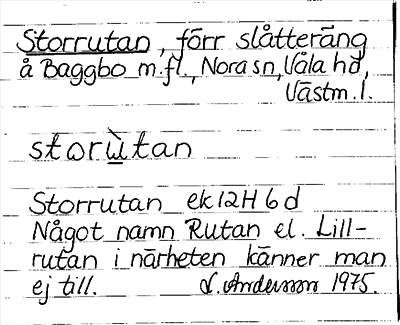 Storrutan, förr slåtteräng
å Baggbo m.fl., Nora sn, Våla hd,
Västm.l.
storùtan
Storrutan ek 12H 6d
Något namn Rutan el. Lill-
rutan i närheten känner man
ej till. L. Andersson 1975.